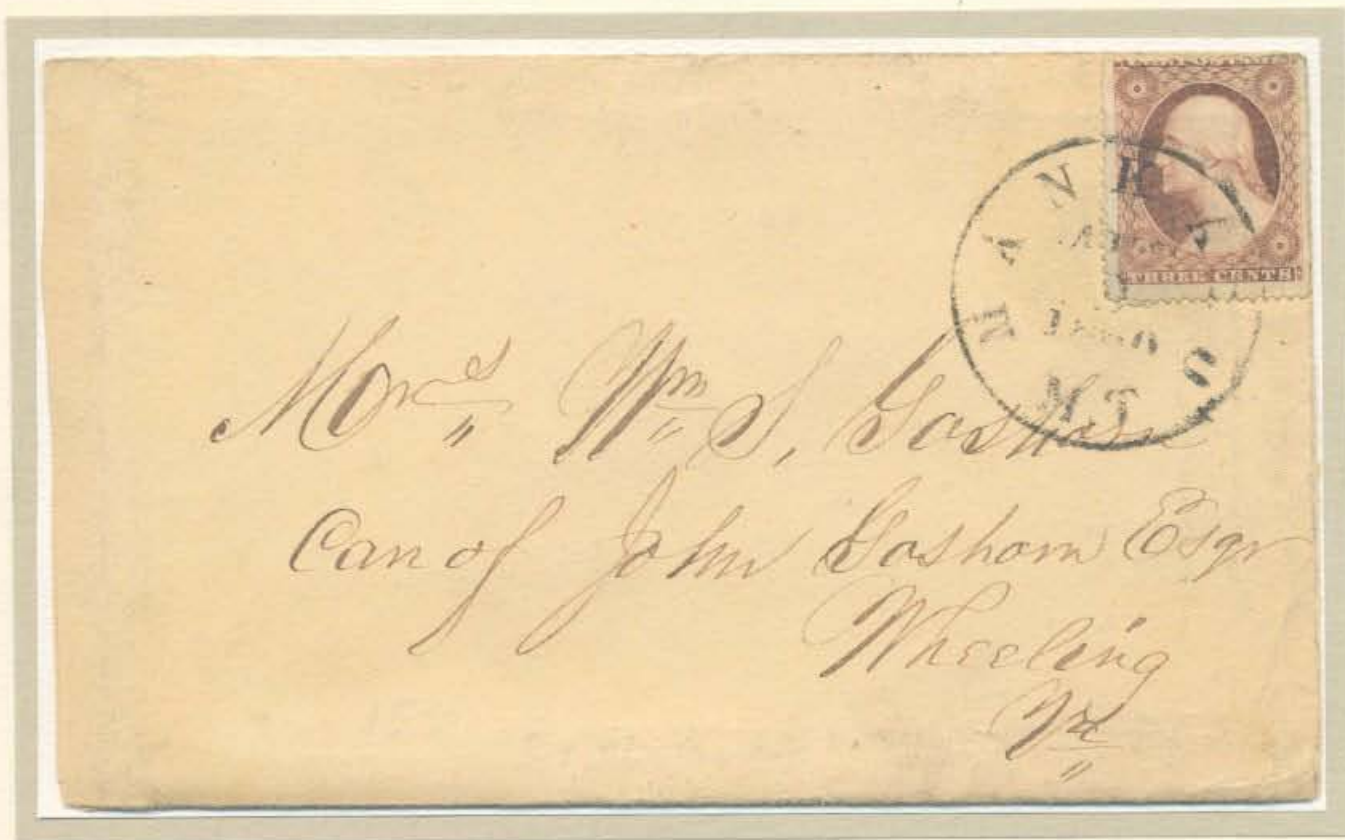 THREE CENTS
MANKATO
1860
M.T
Mrs Wm S, Goshorn
Care of John Goshorn Esqr
Wheeling
Va